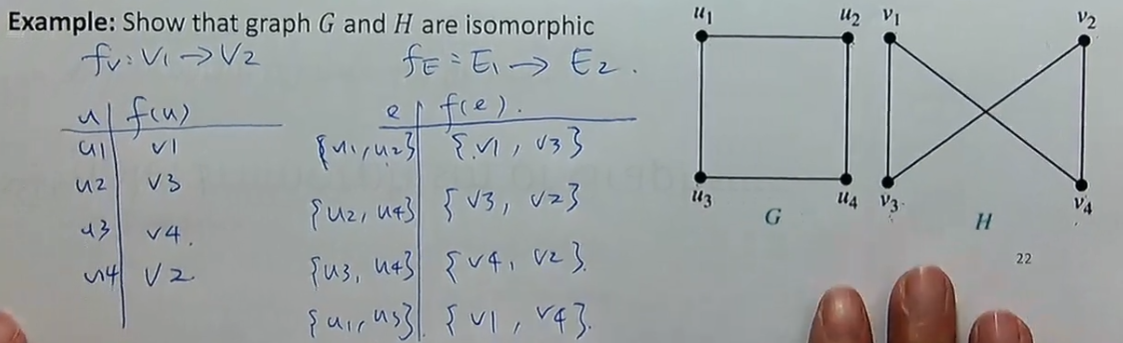 Example: Show that graph G and H are isomorphic
fv: V1 → V2
fE: E1 → E2.
u f(u)
u1 v1
u2 v3
u3 v4.
u4 v2
e f(e).
{u1, u2} {v1, v3}
{u2, u4} {v3, v2}
{u3, u4} {v4, v2}.
{u1, u3} {v1, v4}.
u1 u2
u3 u4
G
v1 v2
v3 v4
H
22